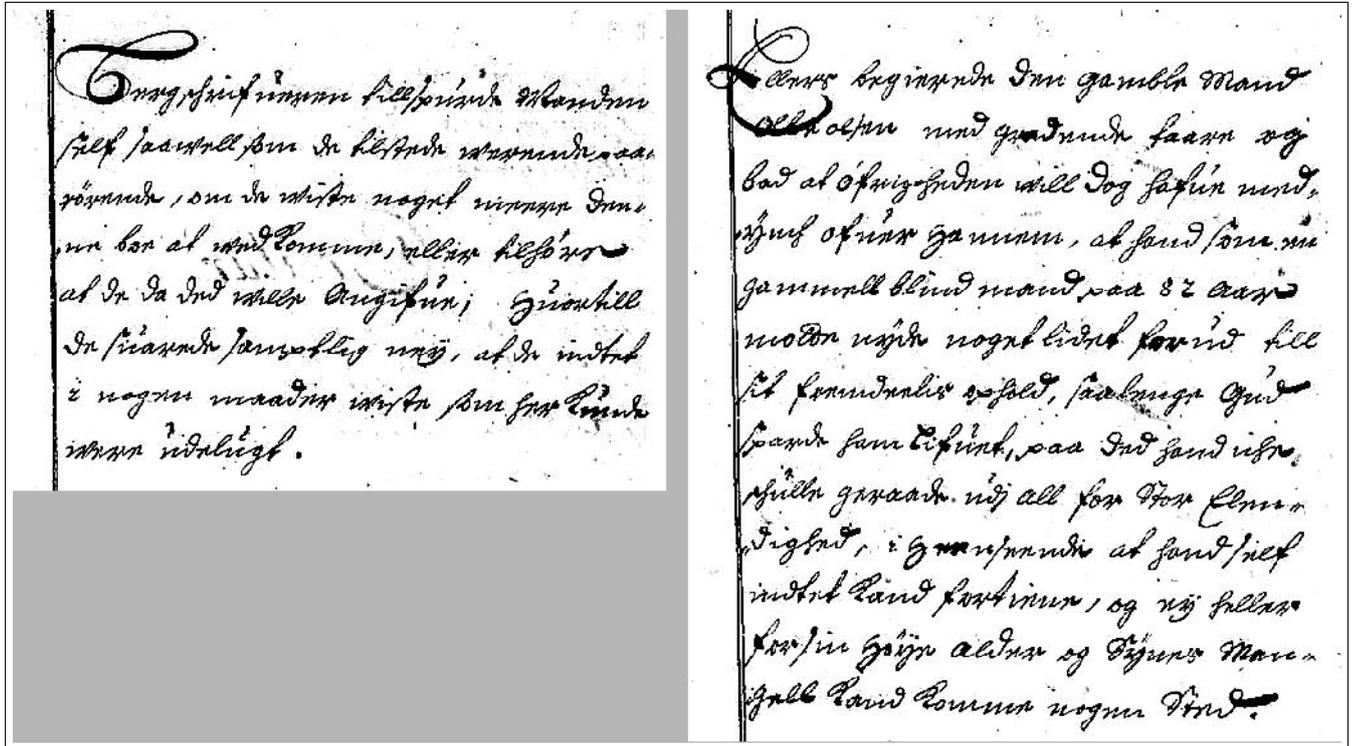 Bergschrifueren tillspurde Manden
self saawell som de tilstede werende paa-
rörende, om de wiste noget meere den-
ne boe at wedkomme, eller tilhöre
at de da ded wille Angifue; Huortill
de suarede samptlig ney, at de indtet
i nogen maader wiste som her kunde
were udelugt.
Ellers begierede den gamble Mand
Olle olsen med grædende taare og
bad at öfrigheden will dog hafue med-
ynch ofuer Hannem, at hand som en
gammell blind mand paa 82 Aar
motte nyde noget lidet forud till
sit fremdeelis ophold, saalenge Gud
sparde ham Lifuet, paa ded hand iche
schulle geraade udj all for Stor Elen-
dighed, i Henseende at hand self
indtet kand fortiene, og ey heller
for sin Höye alder og Synes Man-
gell kand komme nogen Sted.